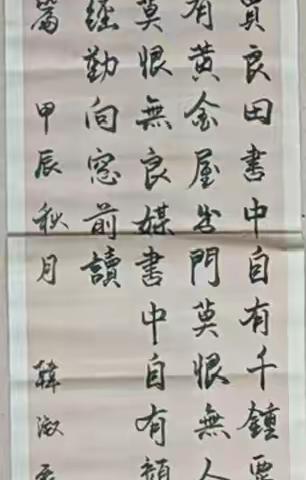 買良田書中自有千鍾粟
有黃金屋出門莫恨無人
莫恨無良媒書中自有顏
經勤向窓前讀
篤 甲辰秋月 韓淑